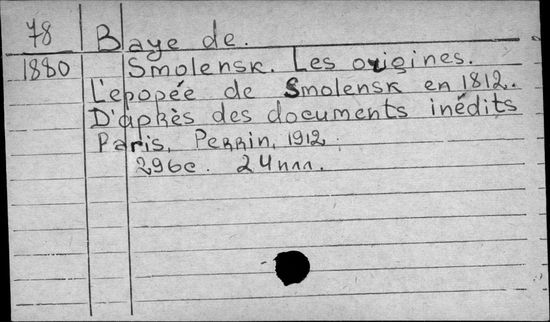 78 Baye de.
1880 Smolensk. Les origines.
L'epopée de Smolensk en 1812.
D'après des documents inédits
Paris, Perrin, 1912
296c. 24илл.